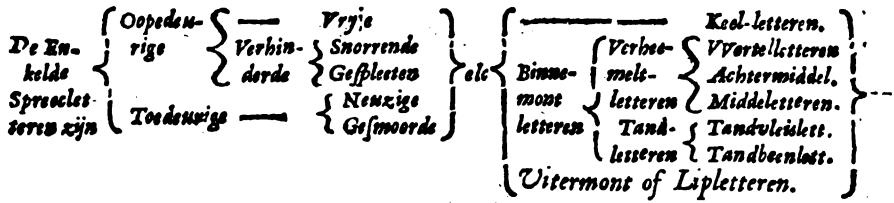 De En-
kelde
Spreeclet-
teren zijn
Oopedeu-
rige
Toedeurige
Vrije
Verhin-
derde
Snorrende
Gespleeten
Neuzige
Gesmoorde
elc
Keel-letteren.
Binne-
mont
letteren
Verhee-
melt-
letteren
VVortelletteren
Achtermiddel.
Middeletteren.
Tand-
letteren
Tandvleislett.
Tandbeenlett.
Vitermont of Lipletteren.